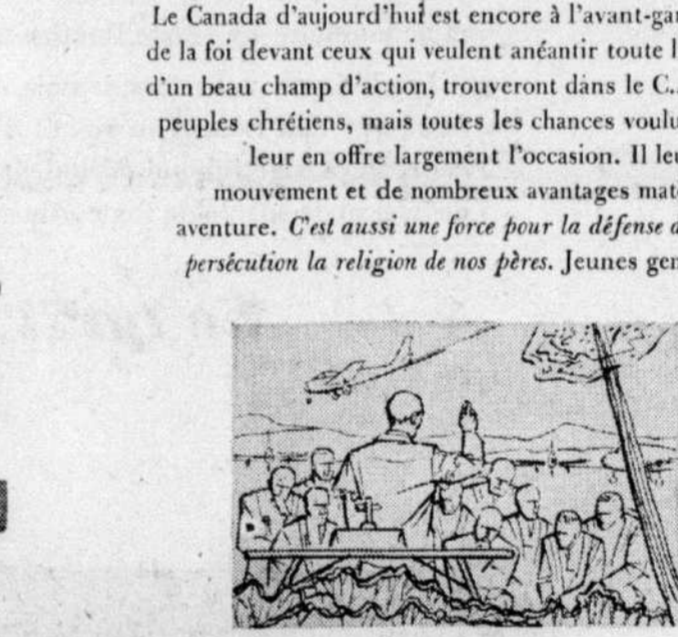 Le Canada d'aujourd'hui est encore à l'avant-gar
de la foi devant ceux qui veulent anéantir toute l
d'un beau champ d'action, trouveront dans le C.
peuples chrétiens, mais toutes les chances voulu
leur en offre largement l'occasion. Il leu
mouvement et de nombreux avantages mat
aventure. C'est aussi une force pour la défense d
persécution la religion de nos pères. Jeunes gen